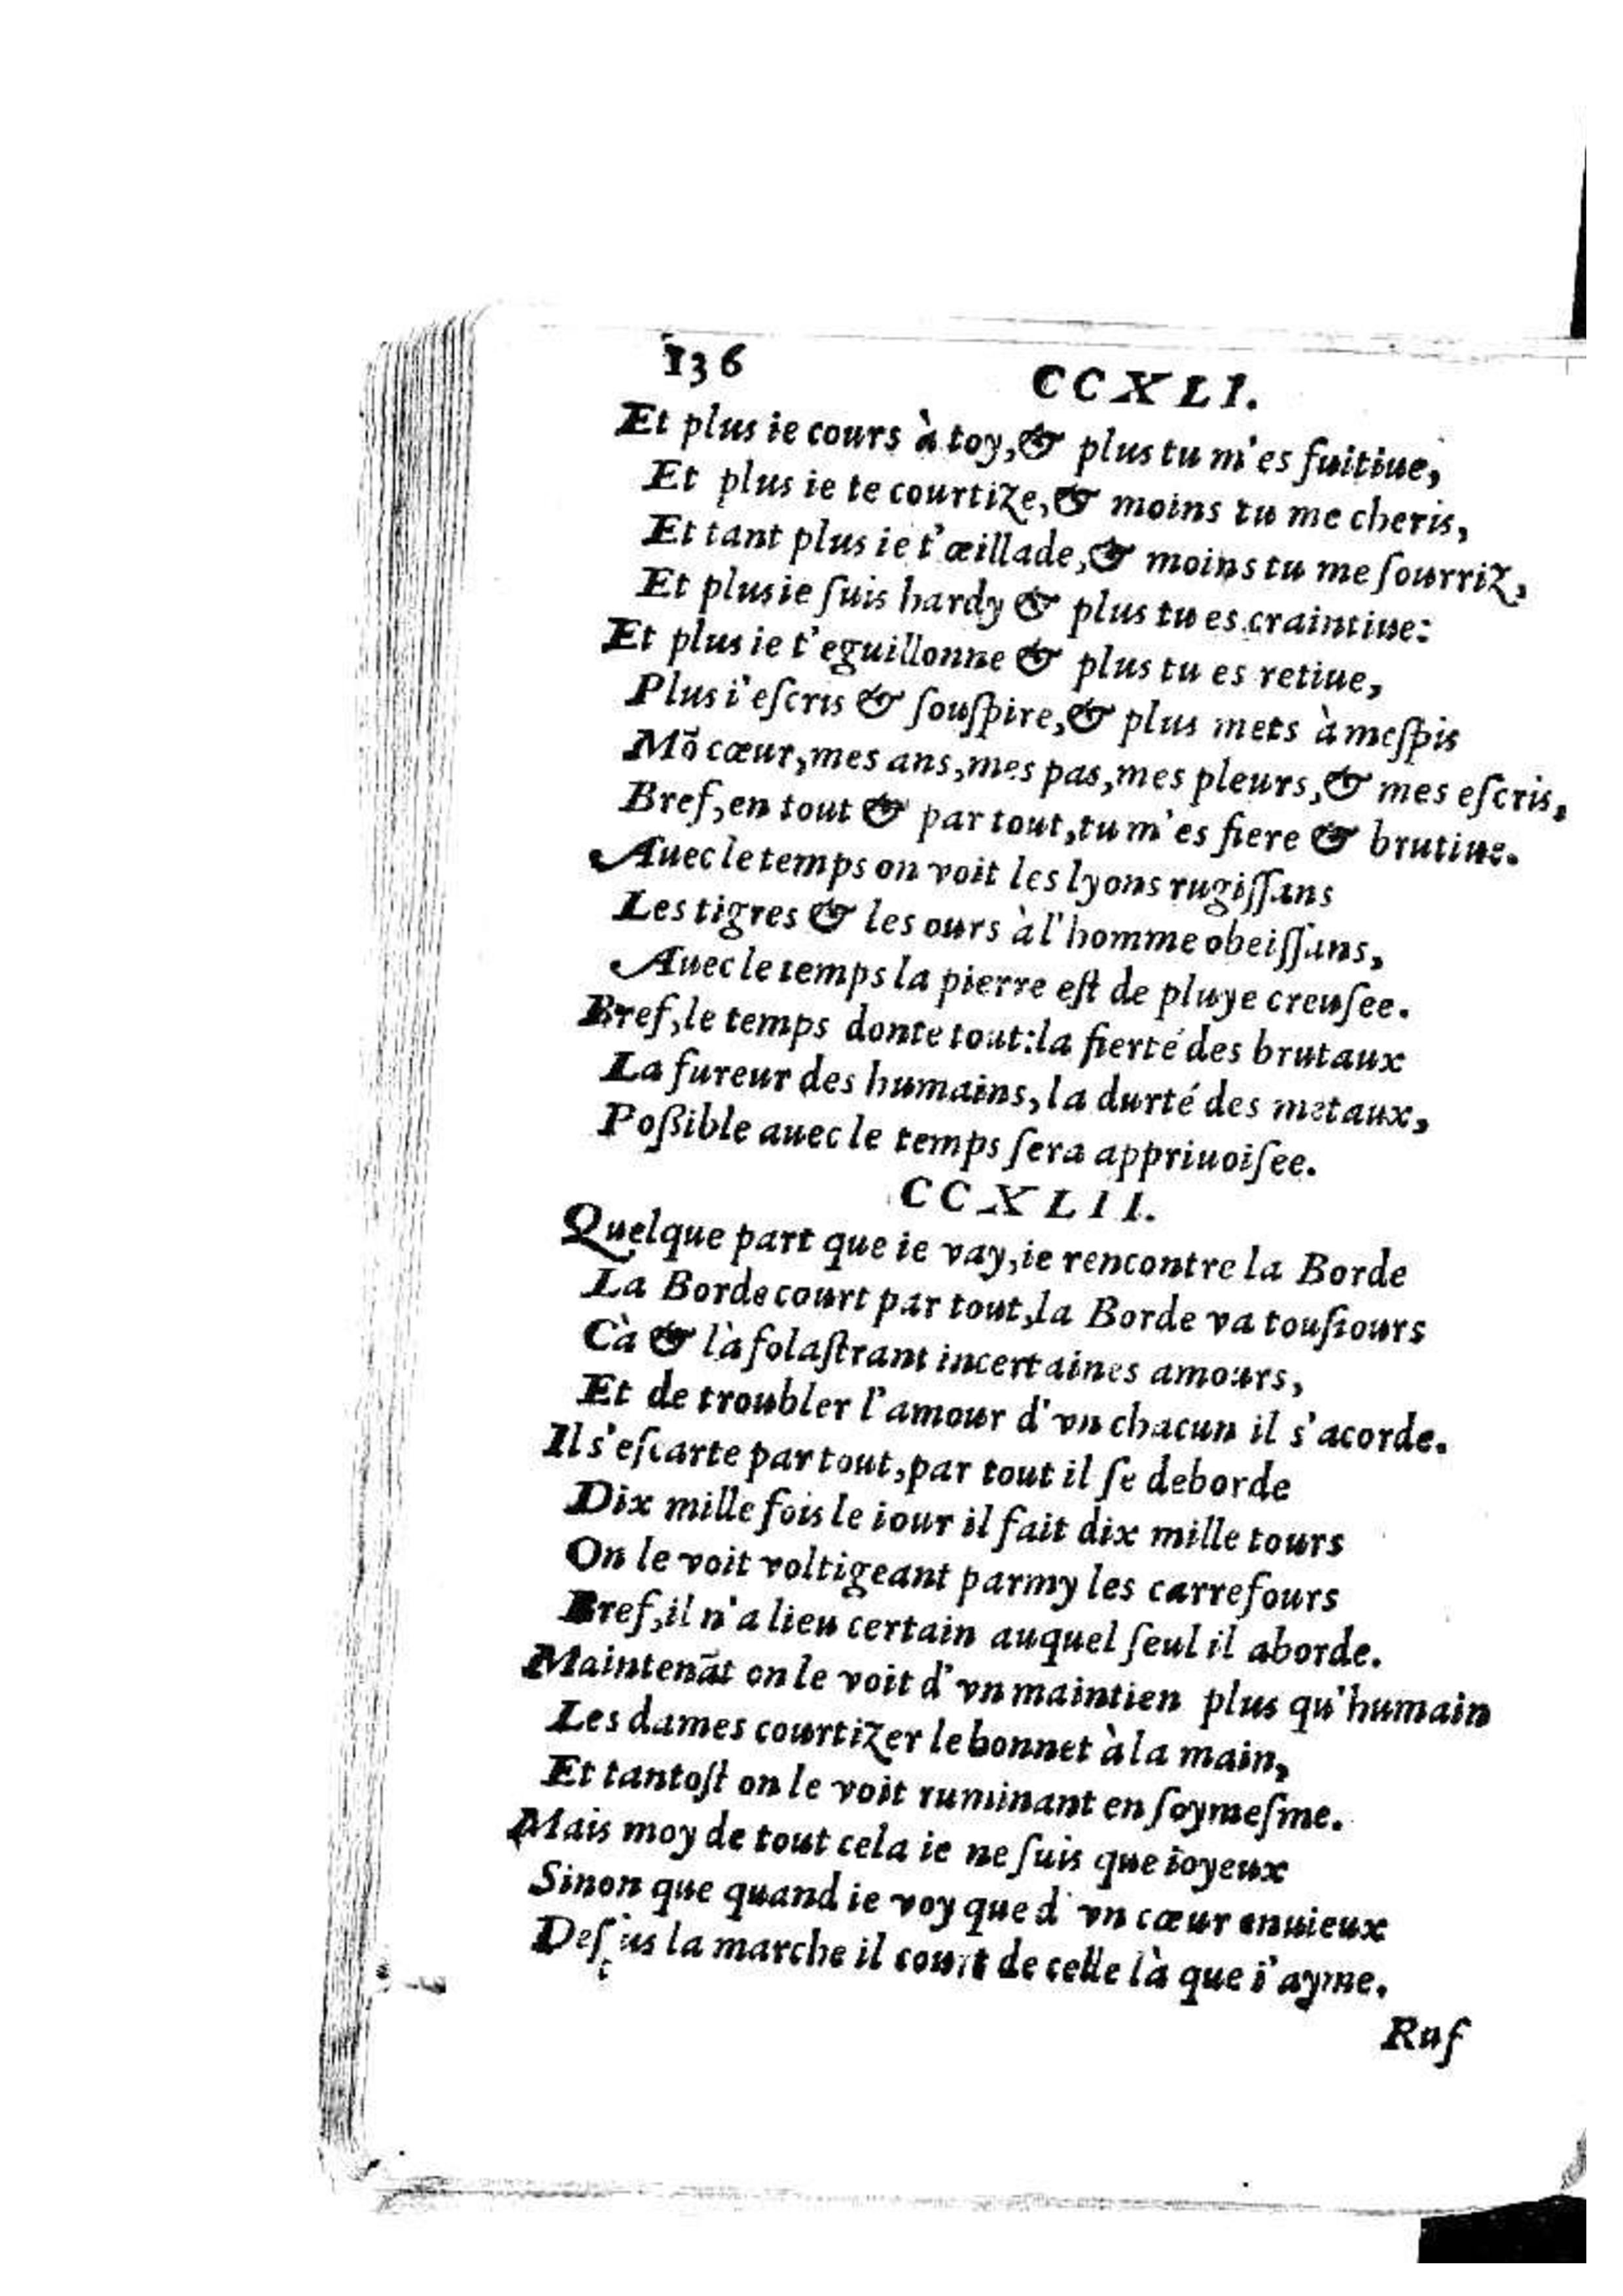 136
CCXLI.
Et plus ie cours à toy, & plus tu m'es fuitiue,
Et plus ie te courtize, & moins tu me cheris,
Et tant plus ie t'œillade, & moins tu me ſourriz,
Et plus ie ſuis hardy & plus tu es craintiue:
Et plus ie t'eguillonne & plus tu es retiue,
Plus i'eſcris & ſouſpire, & plus mets à meſpis
Mõ cœur, mes ans, mes pas, mes pleurs, & mes eſcris,
Bref, en tout & par tout, tu m'es fiere & brutiue.
Auec le temps on voit les lyons rugiſſans
Les tigres & les ours à l'homme obeiſſans,
Auec le temps la pierre eſt de pluye creuſee.
Bref, le temps donte tout: la fierté des brutaux
La fureur des humains, la durté des metaux,
Poßible auec le temps ſera appriuoiſee.
CCXLII.
Quelque part que ie vay, ie rencontre la Borde
La Borde court par tout, la Borde va touſiours
Cà & là folaſtrant incertaines amours,
Et de troubler l'amour d'vn chacun il s'acorde.
Il s'eſcarte par tout, par tout il ſe deborde
Dix mille fois le iour il fait dix mille tours
On le voit voltigeant parmy les carrefours
Bref, il n'a lieu certain auquel ſeul il aborde.
Maintenãt on le voit d'vn maintien plus qu'humain
Les dames courtizer le bonnet à la main,
Et tantoſt on le voit ruminant en ſoymeſme.
Mais moy de tout cela ie ne ſuis que ioyeux
Sinon que quand ie voy que d'vn cœur enuieux
la marche il court de celle là que i'ayme.
Ruſ